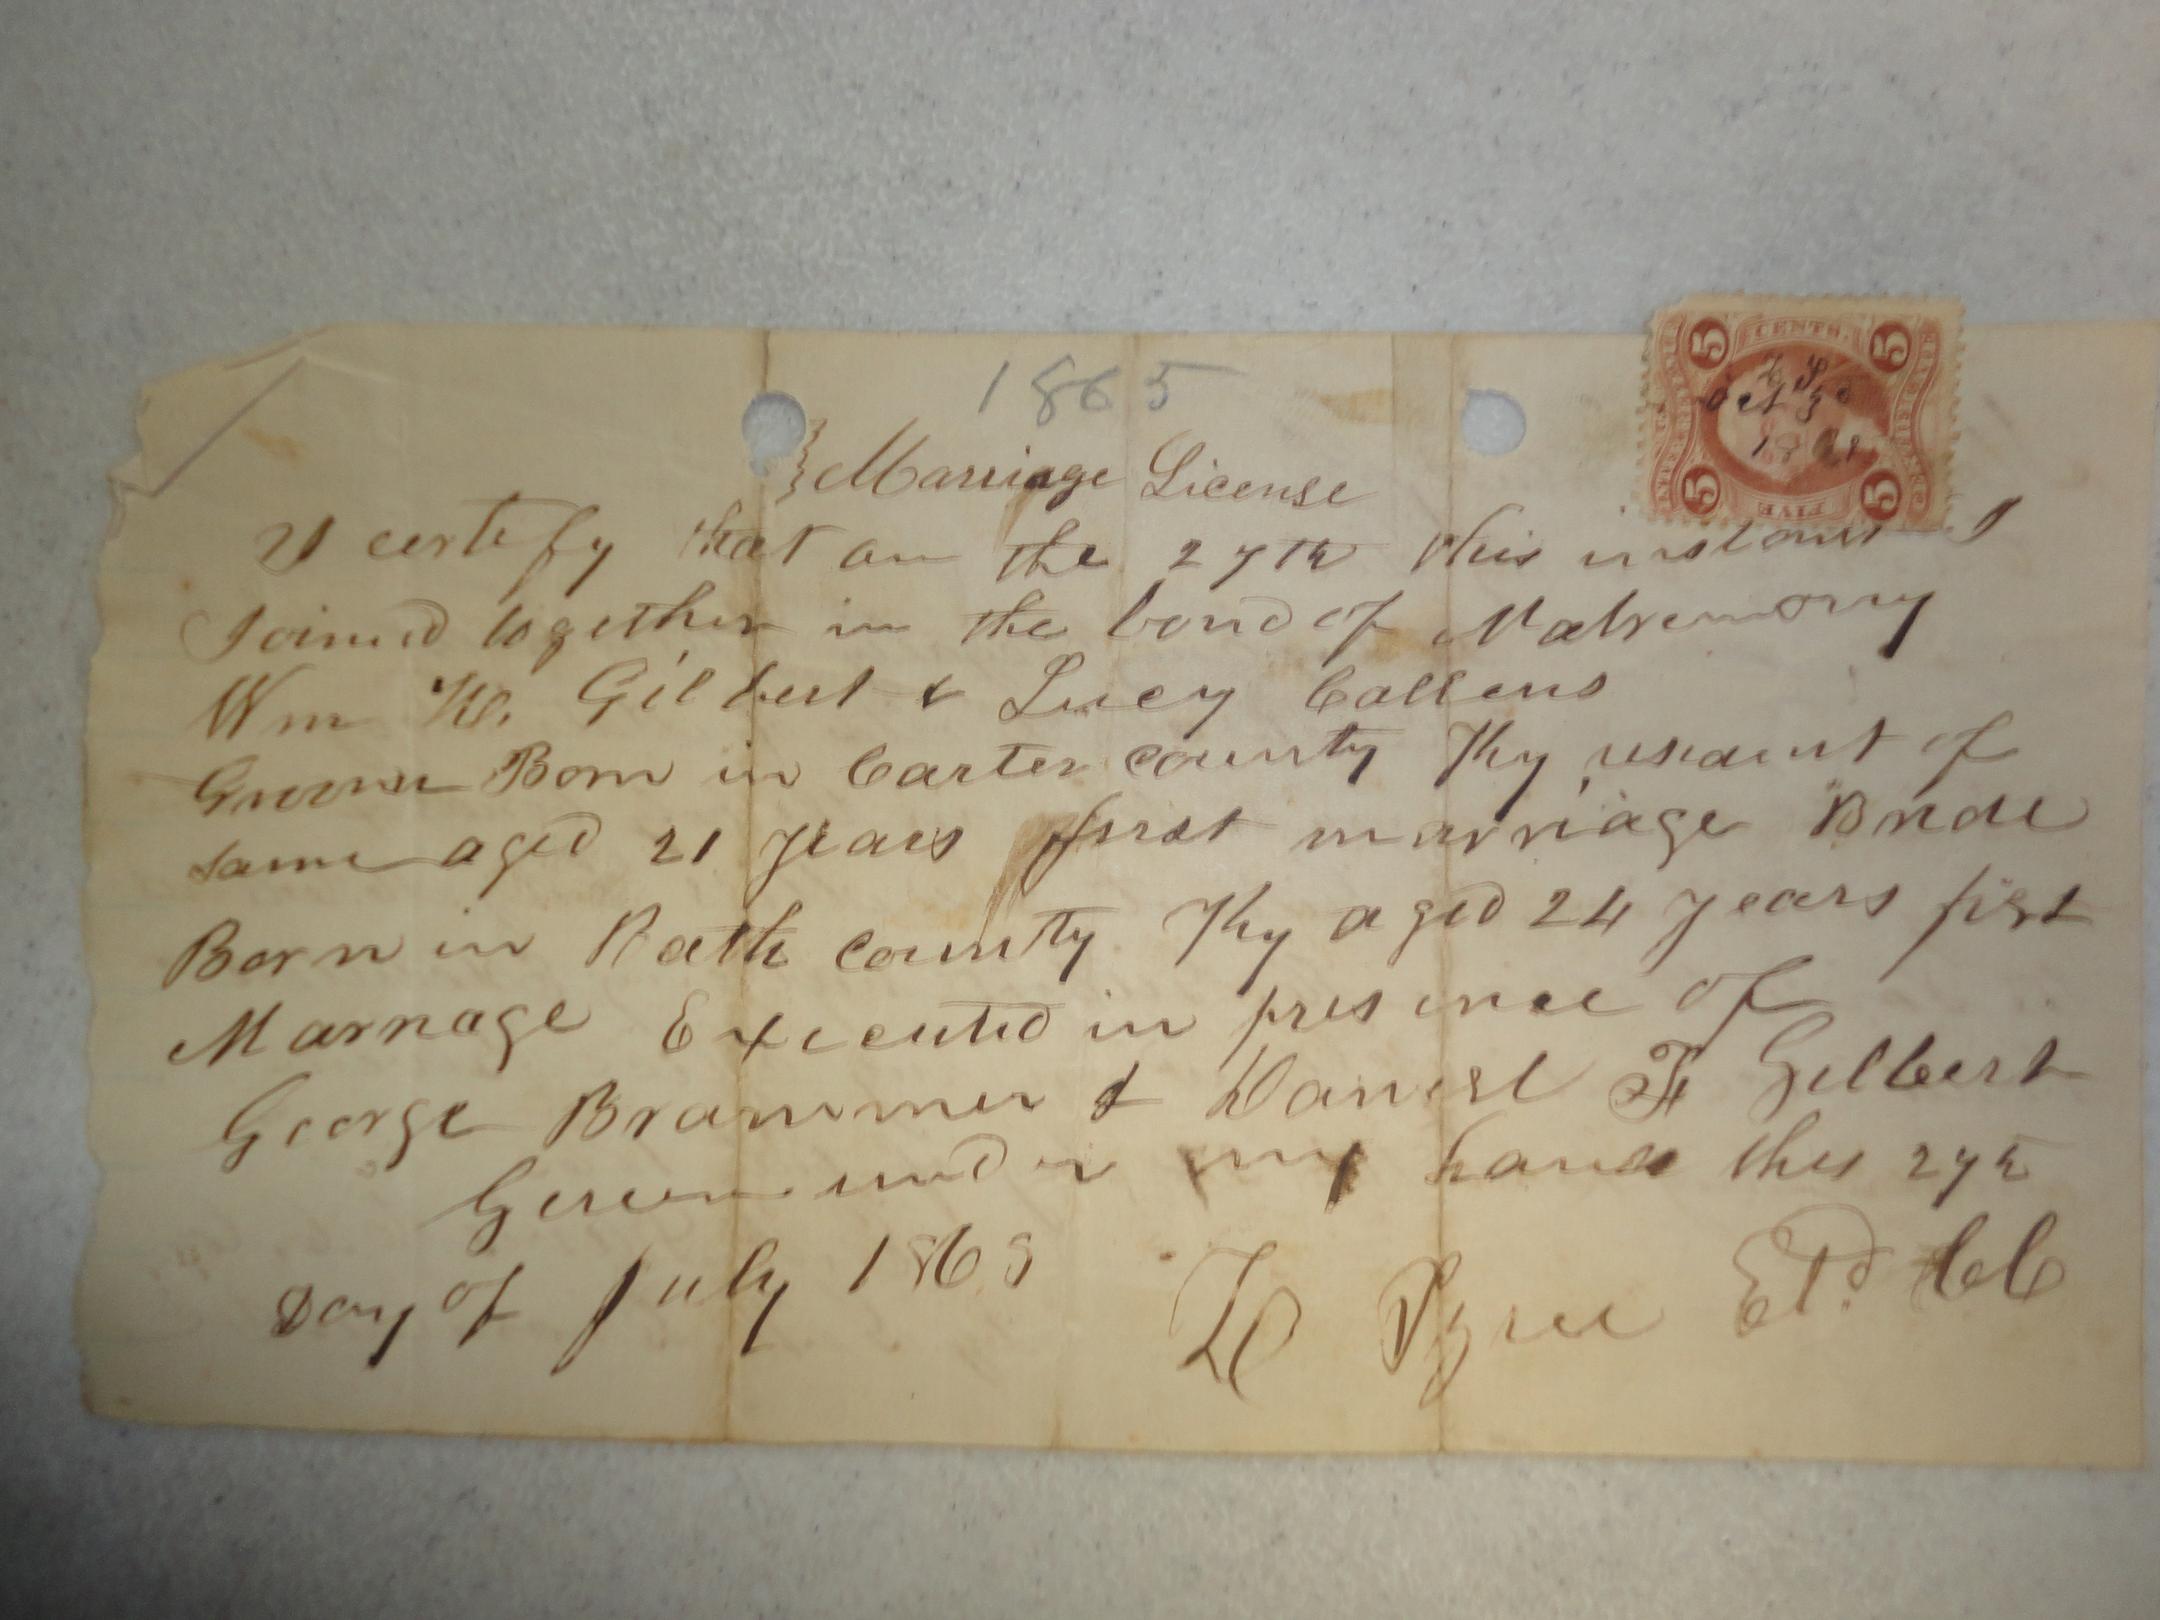 1865
5 CENTS. 5
Oct
5 FIVE 5
Marriage License
I certify that on the 27th this instant I
Joined together in the bond of Matremony
Wm H. Gilbert & Lucy Callens
Groom Born in Carter county Ky resaint of
same aged 21 years first marriage Bride
Born in Bath county Ky aged 24 years first
Marriage Executed in presence of
George Brammer & Daniel F Gilbert
Given under my hand this 27th
Day of July 186